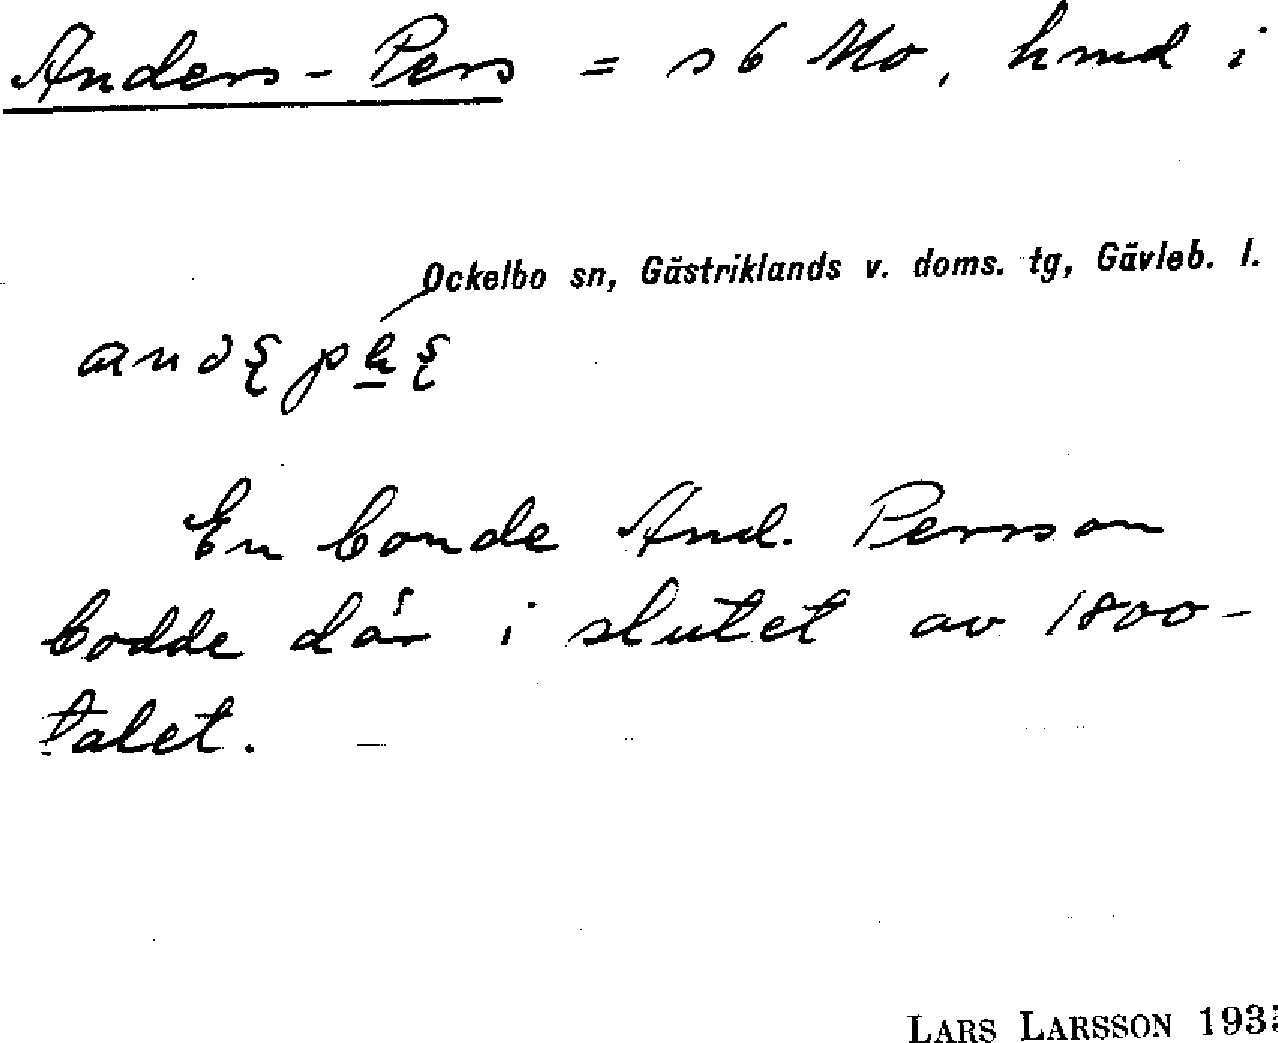 Anders-Pers = s 6 Mo, hmd i
Ockelbo sn, Gästriklands v. doms. tg, Gävleb. l.
En bonde And. Persson
bodde där i slutet av 1800-
talet.
LARS LARSSON 193